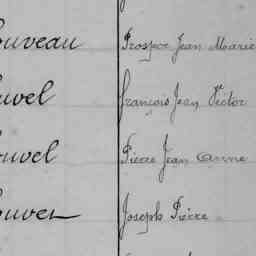 ouveau Prosper Jean Marie
uvel François Jean Victor
ouvel Pierre Jean Anne
ouvel Joseph Pierre